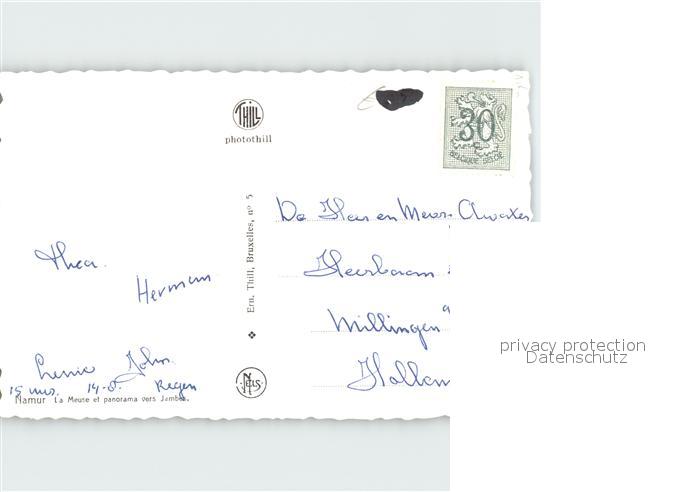 THILL
photothill
30
c
BELGIQUE BELGIË
Ern. Thill, Bruxelles, n° 5
De Heer en Mevr.
Heerbaan
Millingen
Hollan
Thea.
Herman
John.
15 uur. 14-8. Regen
NELS
Namur La Meuse et panorama vers Jambes.
privacy protection
Datenschutz